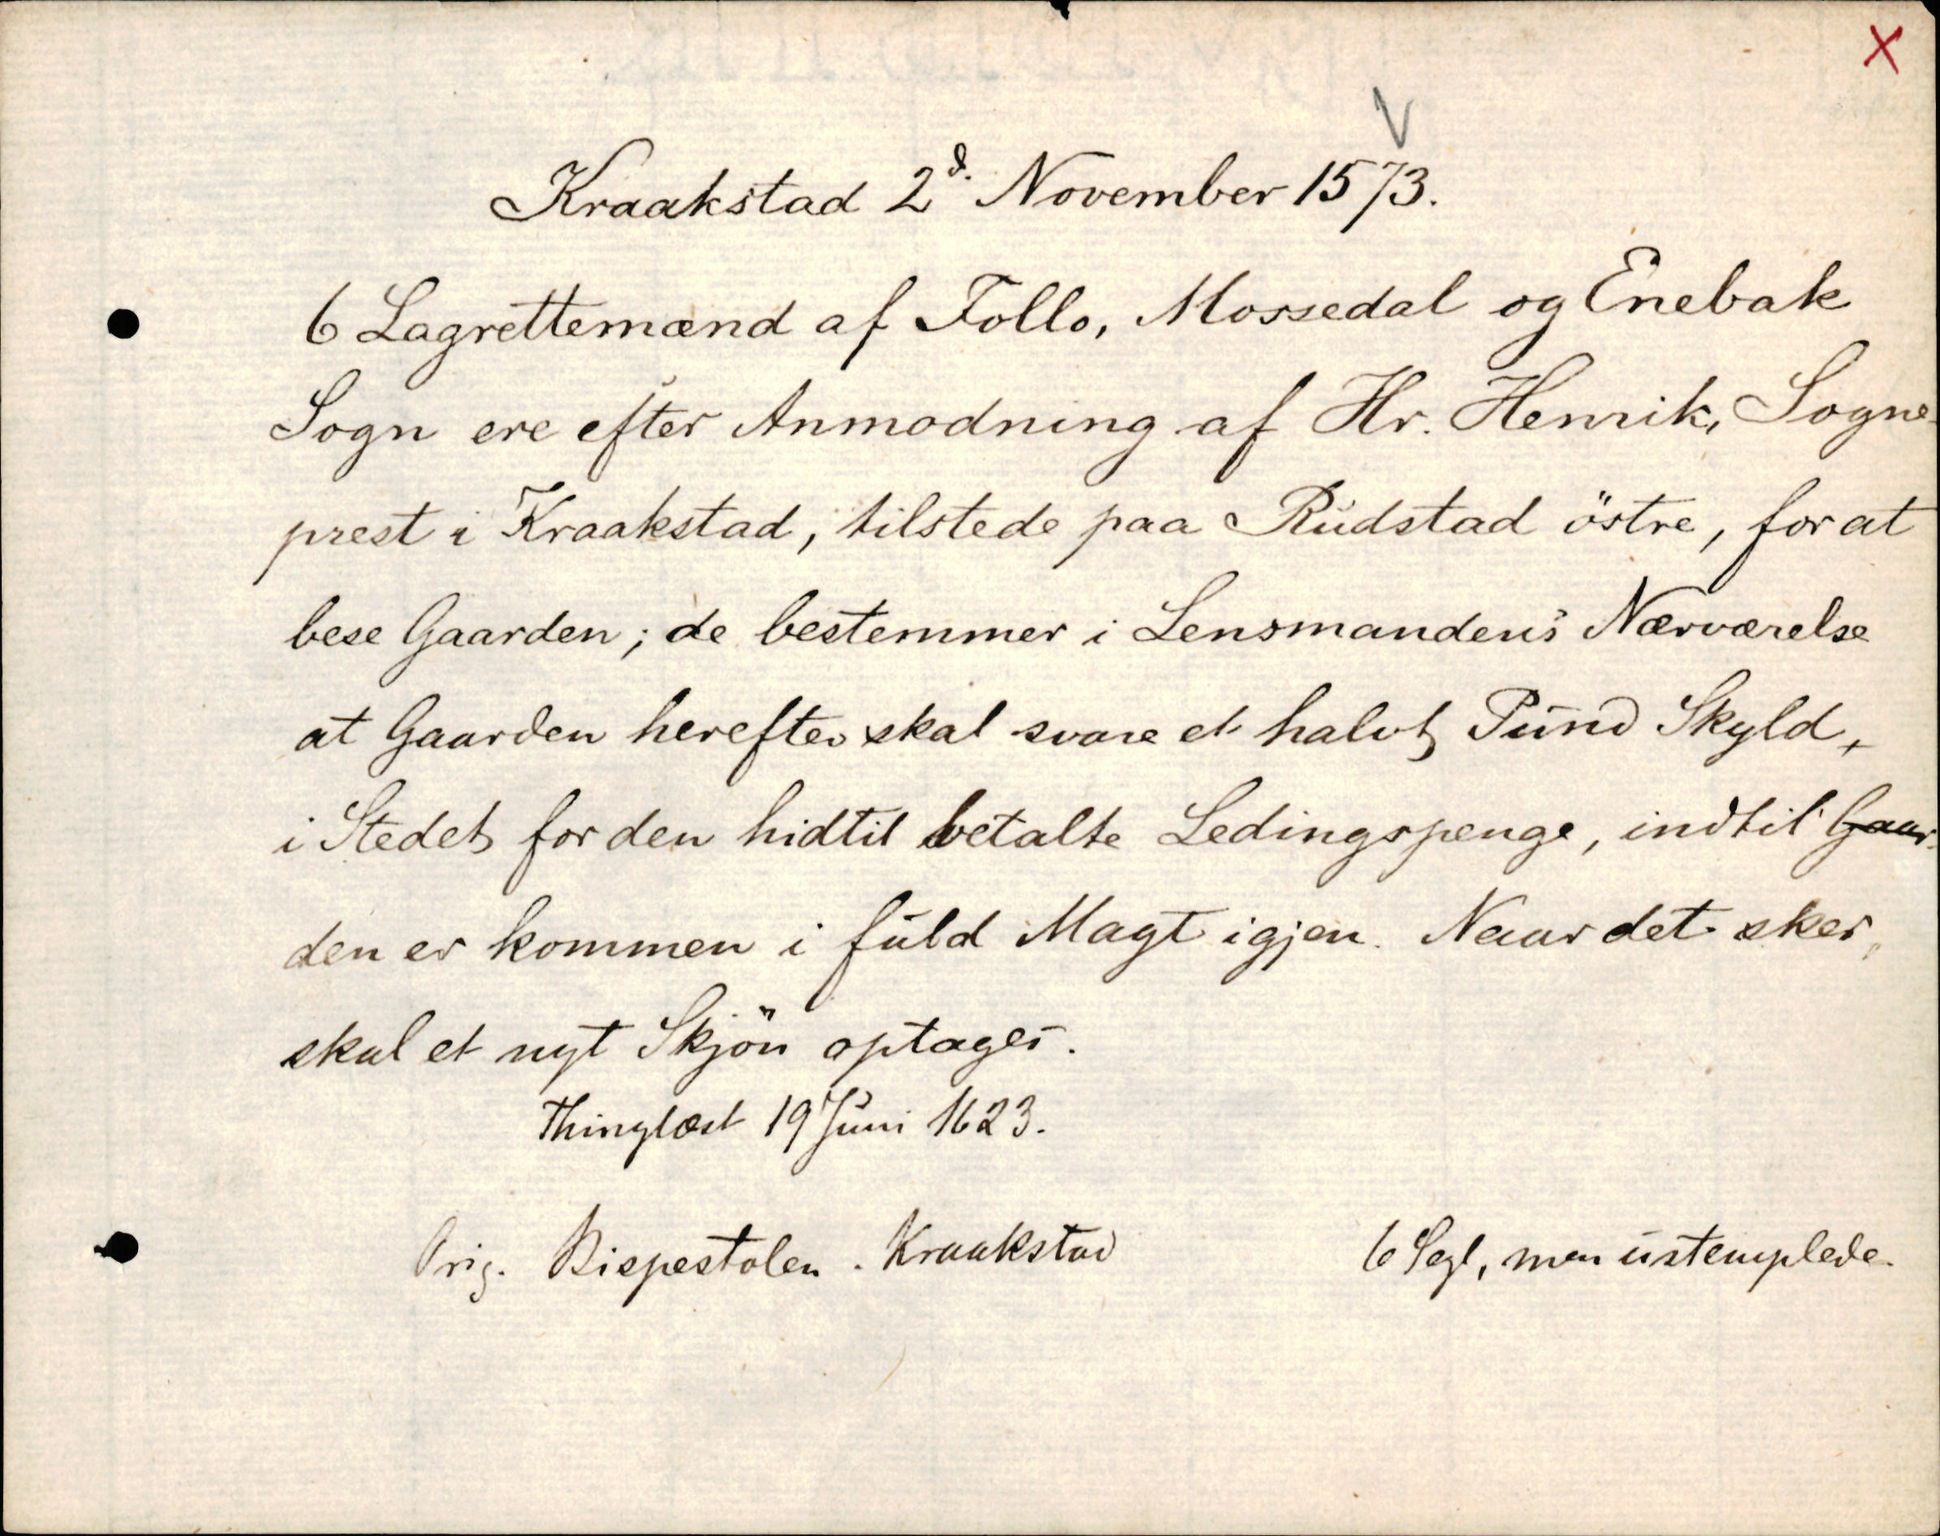 X
V
Kraakstad 2d. November 1573.
6 Lagrettemænd af Follo, Mossedal og Enebak
Sogn ere efter Anmodning af Hr. Henrik, Sogne-
prest i Kraakstad, tilstede paa Rudstad östre, for at
bese Gaarden; de bestemmer i Lensmandens Nærværelse
at Gaarden herefter skal svare et halvt Pund Skyld,
i Stedet for den hidtil betalte Ledingspenge, indtil Gaar-
den er kommen i fuld Magt igjen. Naar det sker,
skal et nyt Skjön optages.
Thinglæst 19 Juni 1623.
Orig. Bispestolen. Kraakstad 6 Segl, men ustemplede.